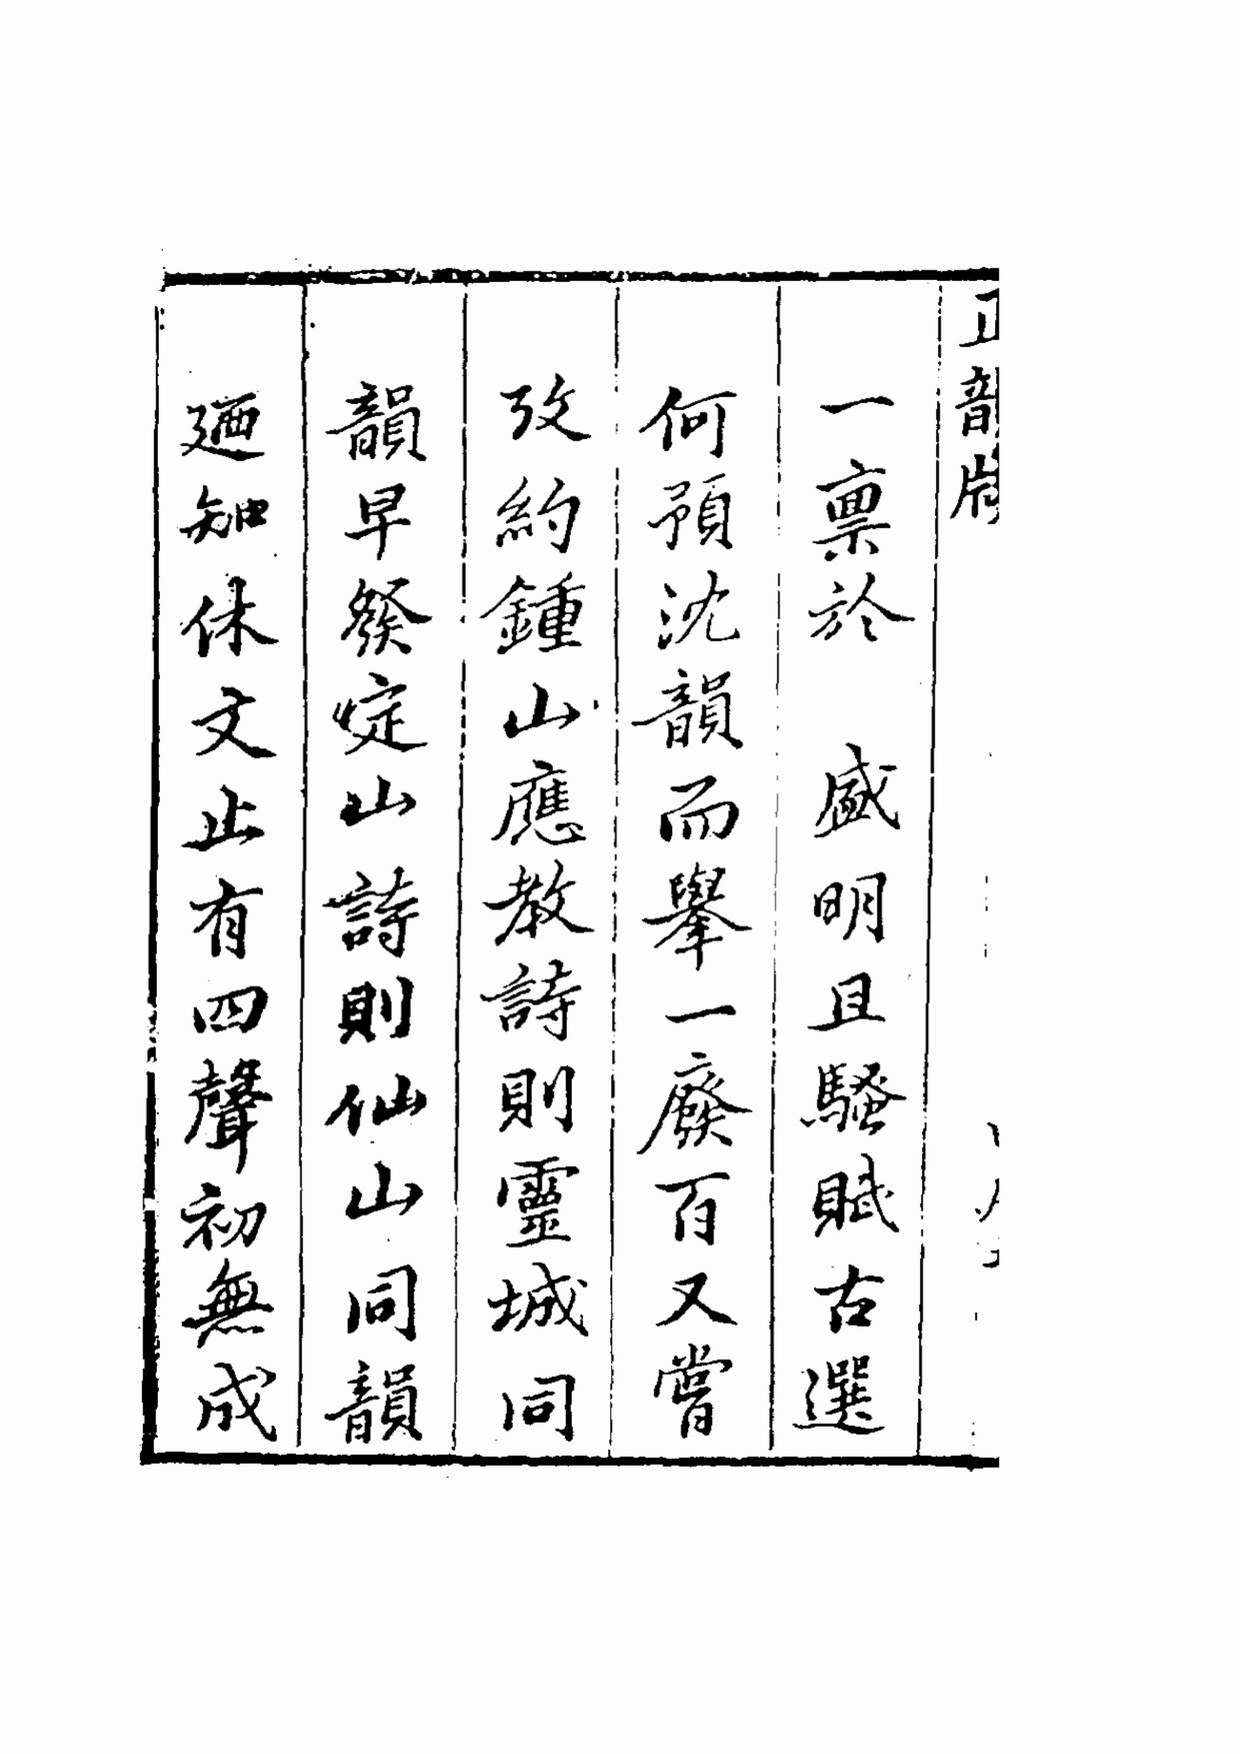 正韻牋
一禀於　盛明且騷賦古選
何預沈韻而舉一廢百又嘗
攷約鍾山應教詩則靈城同
韻早發定山詩則仙山同韻
廼知休文止有四聲初無成